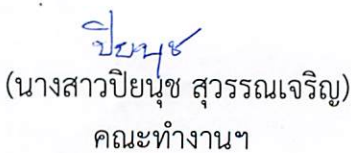 ปิยนุช
(นางสาวปิยนุช สุวรรณเจริญ)
คณะทำงานฯ